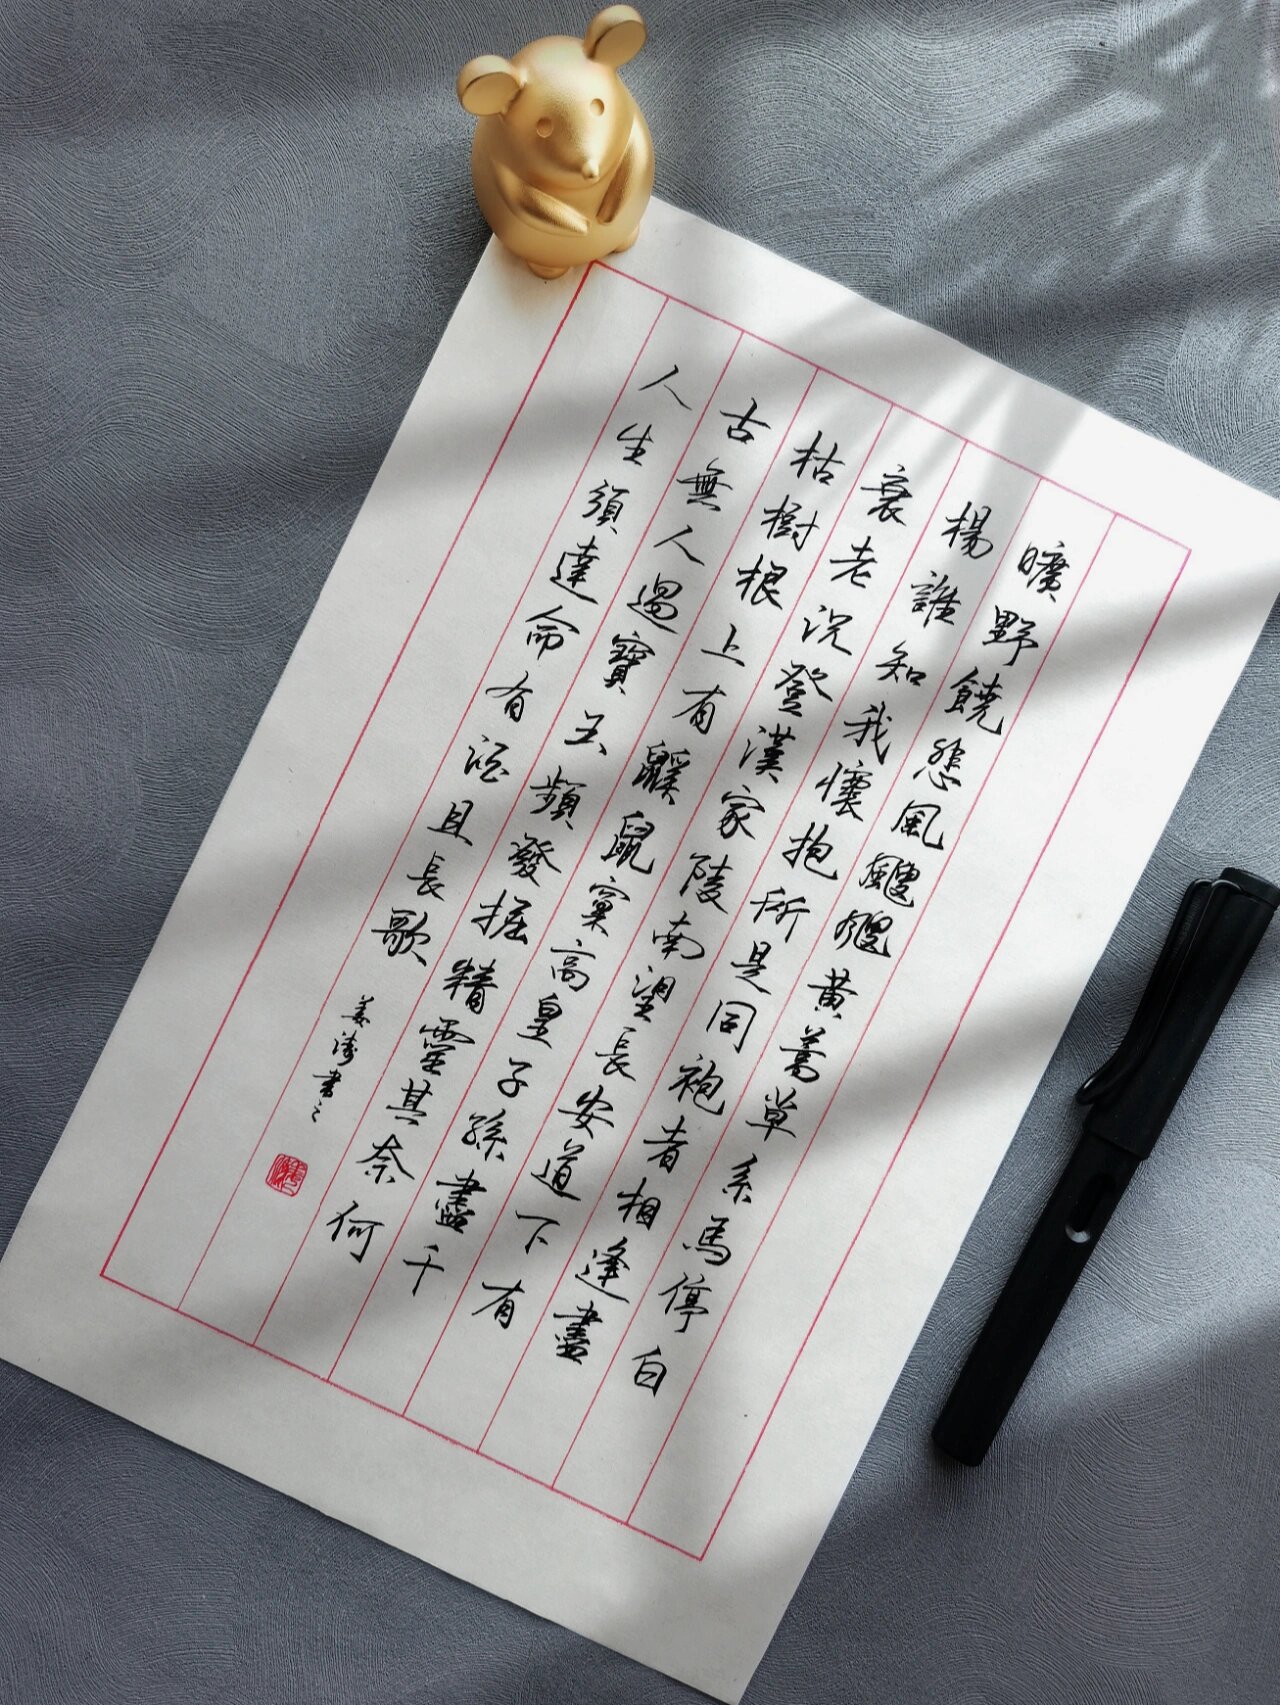 曠野饒悲風颼颼黃蒿草系馬停白
楊誰知我懷抱所是同袍者相逢盡
衰老況登漢家陵南望長安道下有
枯樹根上有鼷鼠窠高皇子孫盡千
古無人過寶玉頻發掘精靈其奈何
人生須達命有酒且長歌
姜濤書之